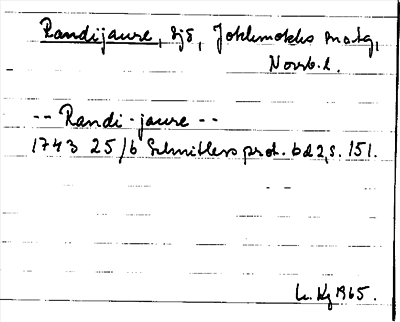 Randijaure, sjö, Jokkmokks
Norrb. l.
-- Randi-jaure --
1743 25/6 Schnitlers prot. bd 2, s. 151.
1965.